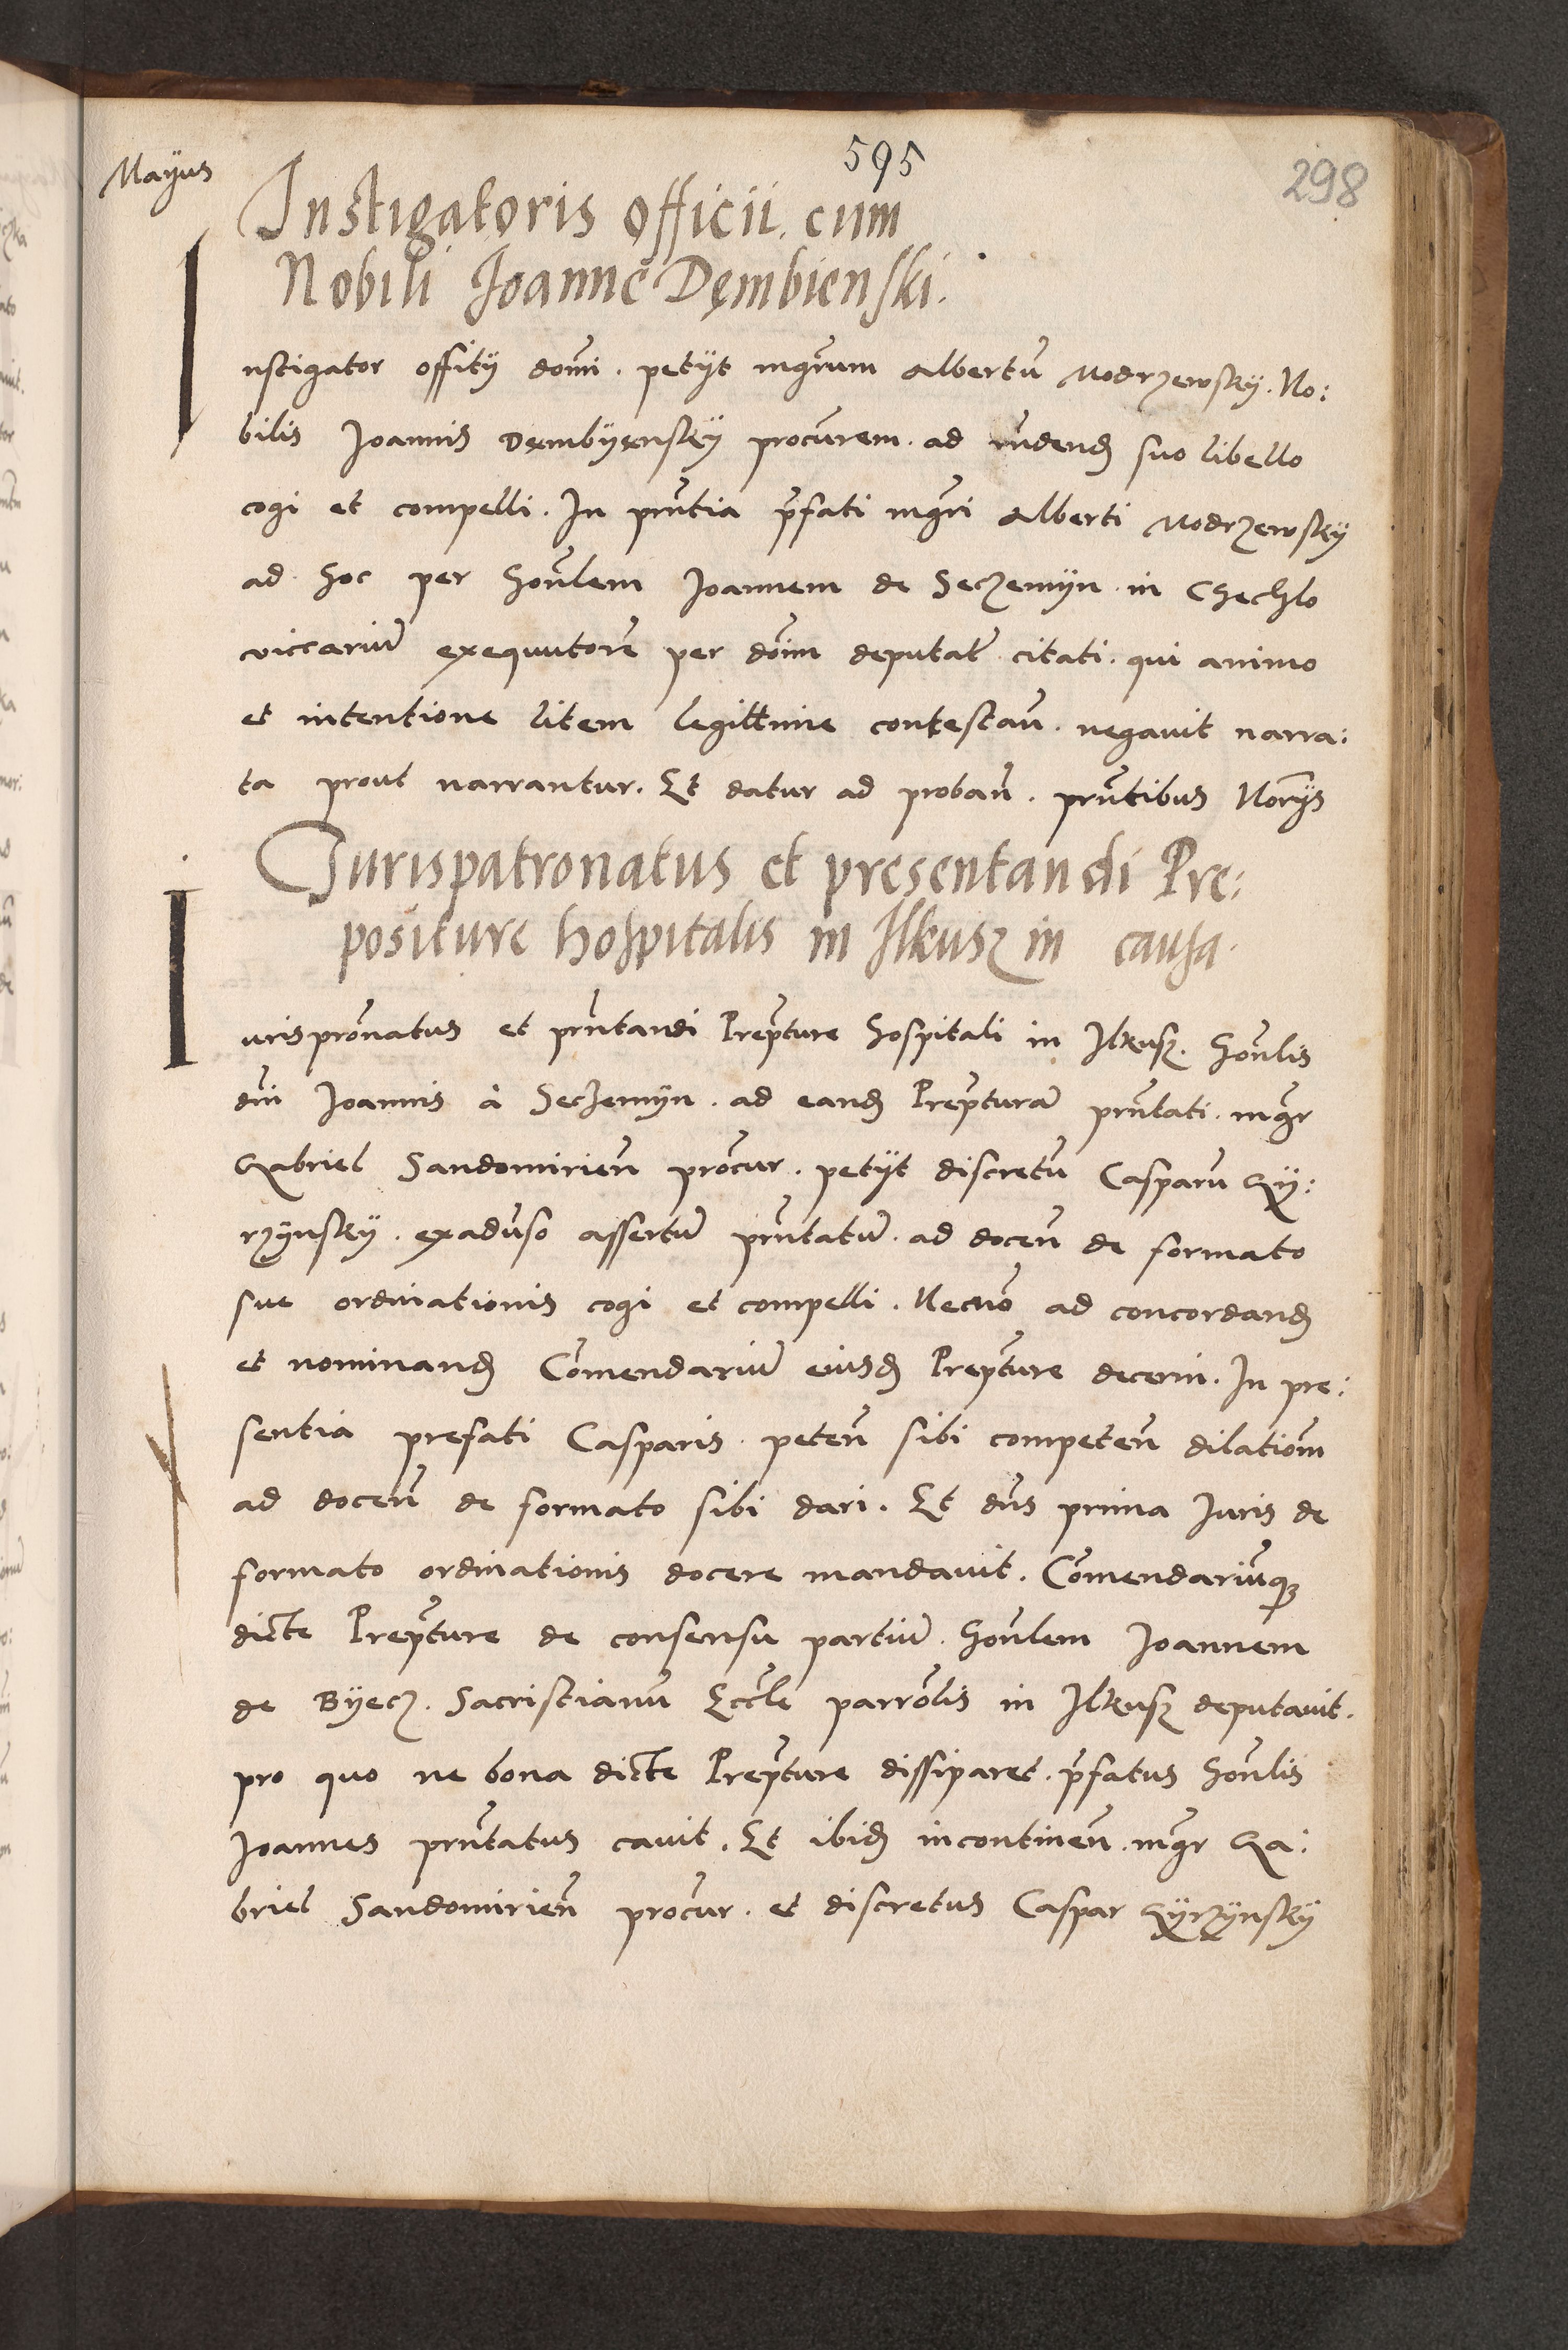 Mayus
595
298
Instigatoris officii cum
Nobili Joanne Dęmbienski.
Instigator offity domi. petyt mgrum Albertu Modrzewsky. No:
bilis Joannis Dembyensky procurem. ad rndend suo libello
cogi et compelli. In pntia pfati mgri Alberti Modrzewsky
ad hoc per honlem Joannem de Seczemyn in Chechlo
viccariu exequutore per doim deputat citati. qui animo
et intentione litem legittime contestan. negavit narra:
ta prout narrantur. Et datur ad proban. pntibus Norys
Jurispatronatus et presentandi Pre:
positure hospitalis in Ilkusz in causa.
Iurispronatus et pntandi Prepture hospitali in Ilkusz. honlis
dni Joannis à Seczemyn. ad eand Preptura pntati. mgr
Gabriel Sandomirien procur. petyt discretu Casparu Gy:
rzynsky. exaduso assertu pntatu. ad docen de formato
sue ordinationis cogi et compelli. Necno ad concordand
et nominand Comendariu eiusd Prepture decerni. In pre:
sentia prefati Casparis. peten sibi competen dilationm
ad docen de formato sibi dari. Et dns prima Iuris de
formato ordinationis docere mandavit. Comendariuq
dicte Prepture de consensu partiu. honlem Joannem
de Byecz. Sacristianu Eccle parrolis in Ilkusz deputavit.
pro quo ne bona dicte Prepture dissiparet. pfatus honlis
Joannes pntatus cavit. Et ibid incontinen. mgr Ga:
briel Sandomirien procur. et discretus Caspar Gyrzynsky